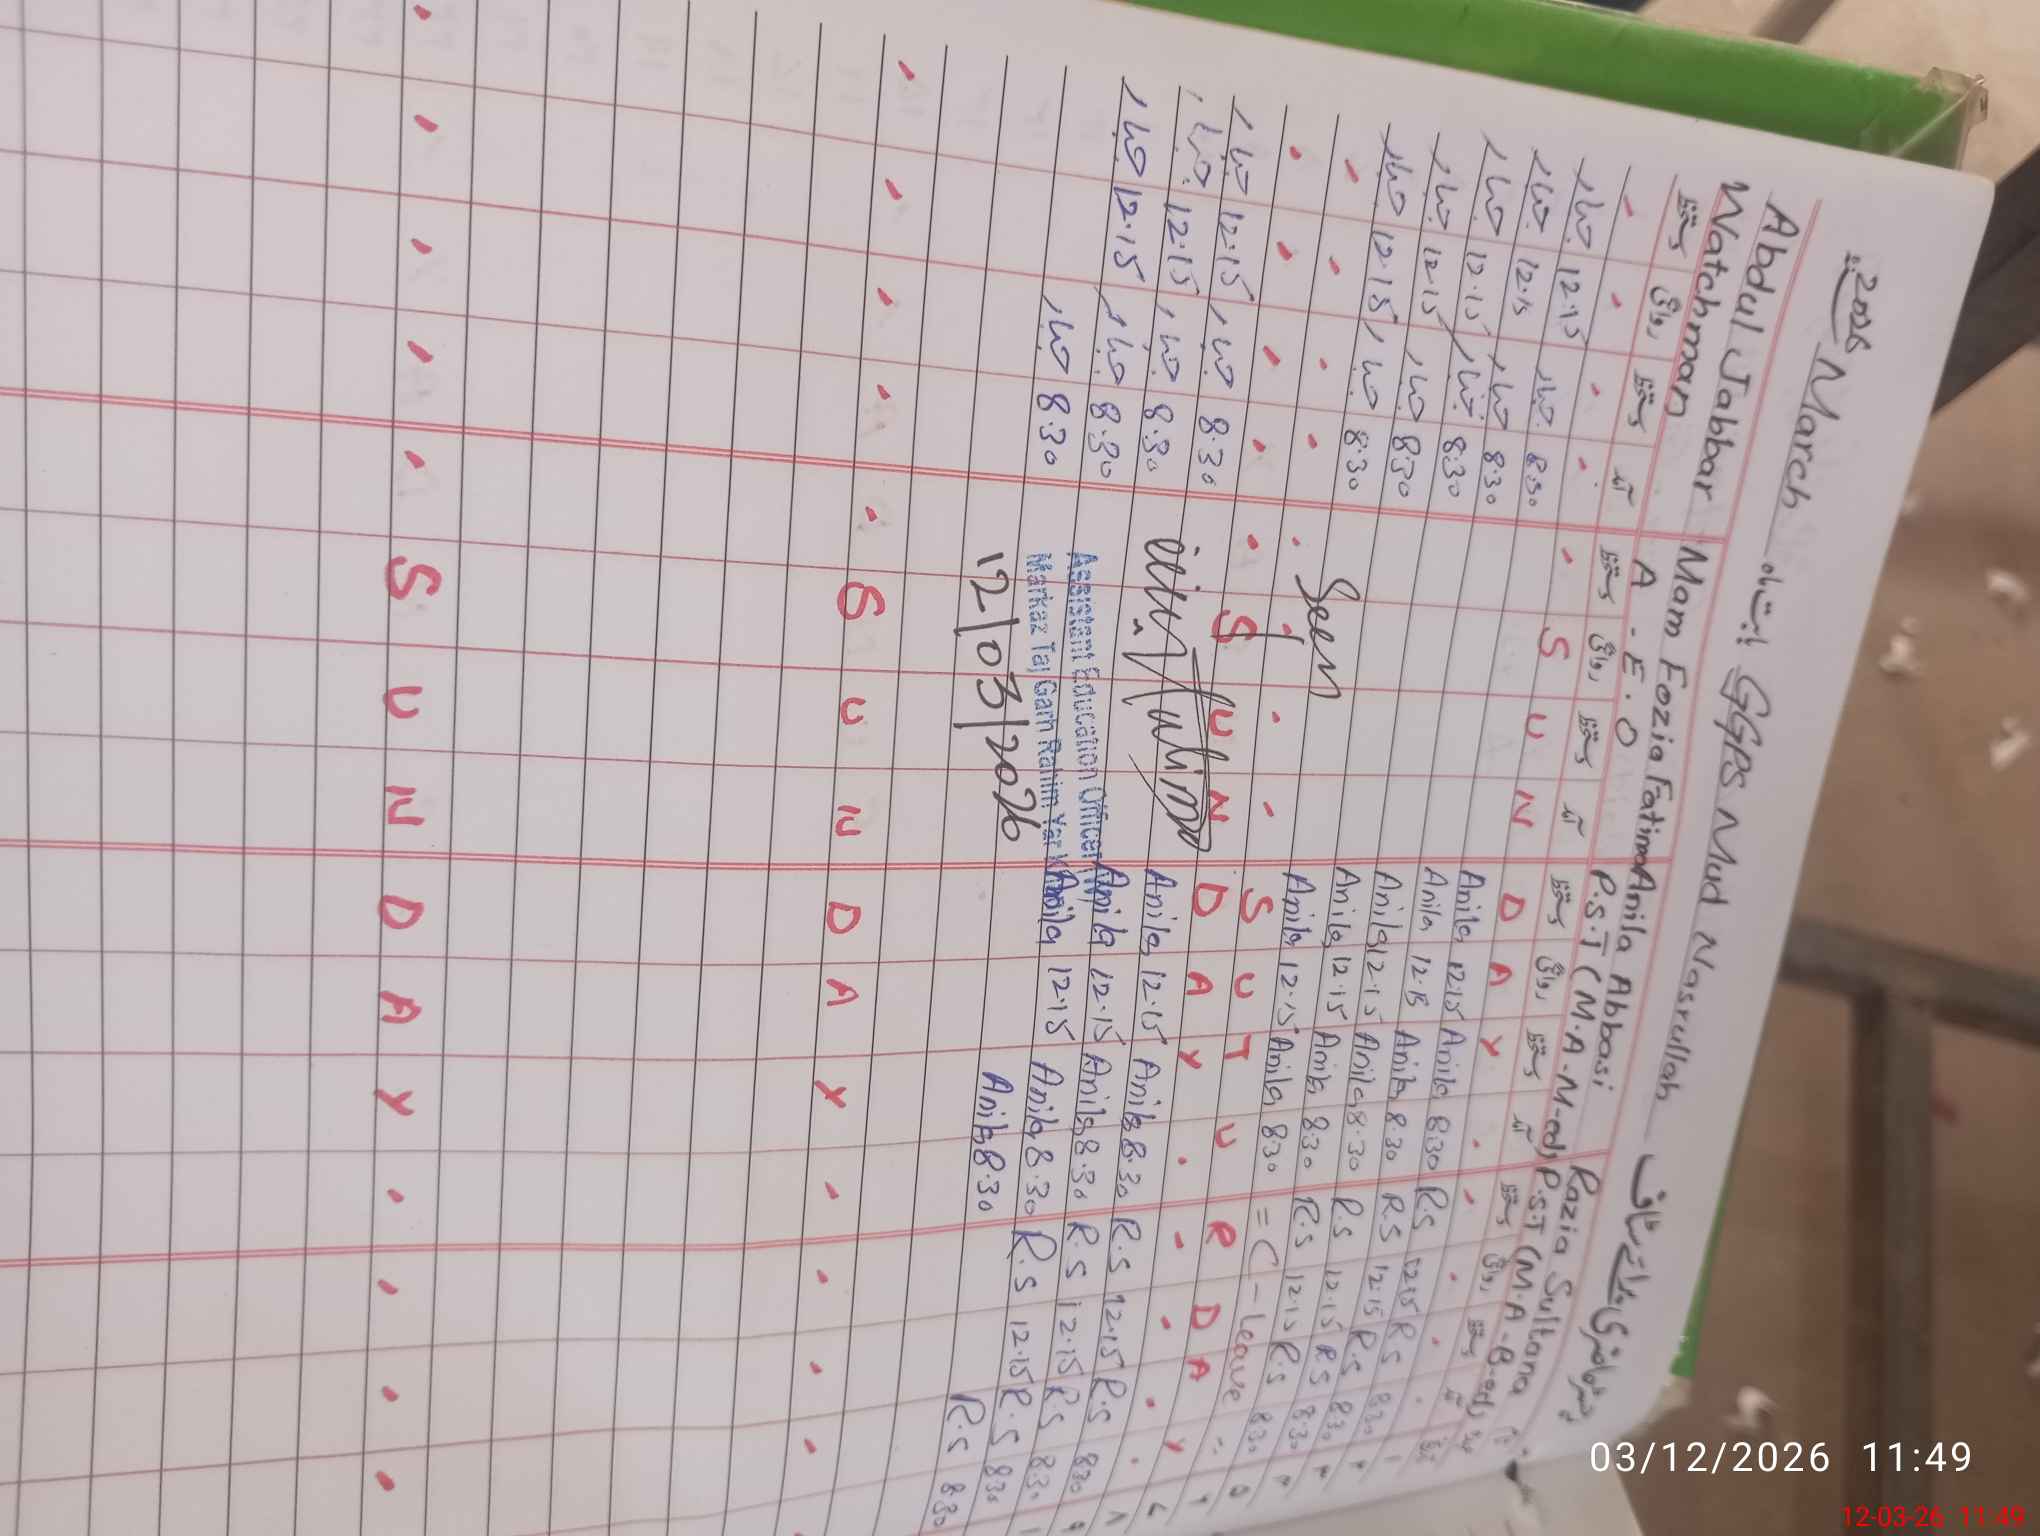 2026 March بابت ماہ GGPS Mud Nasrullah
Abdul Jabbar Mam Fozia Fatima Anila Abbasi Razia Sultana
Watchman A.E.O P.S.T (M.A-M-ed) P.S.T (M.A-B-ed)
دستخط روانگی دستخط آمد دستخط روانگی دستخط آمد دستخط روانگی دستخط آمد دستخط روانگی دستخط آمد
S U N D A Y
12.15 8:30 Anila 12.15 Anila 8:30 R.S 12.15 R.S 8:30
12.15 8:30 Anila 12.15 Anila 8:30 R.S 12.15 R.S 8:30
12.15 8:30 Anila 12.15 Anila 8.30 R.S 12.15 R.S 8:30
12.15 8:30 Anila 12.15 Anila 8:30 R.S 12.15 R.S 8:30
12.15 8:30 Anila 12.15 Anila 8:30 = C-leave =
Seen
S U T U R D A Y
S U N D A Y
12.15 8.30 Anila 12.15 Anila 8.30 R.S 12.15 R.S 8:30
12.15 8.30 Anila 12.15 Anila 8.30 R.S 12.15 R.S 8:30
12.15 8.30 Anila 12.15 Anila 8.30 R.S 12.15 R.S 8:30
8.30 Anila 8.30 R.S 8:30
Assistant Education Officer (W)
Markaz Taj Garh Rahim Yar Khan
12/03/2026
S U N D A Y
S U N D A Y
03/12/2026 11:49
12-03-26 11:49